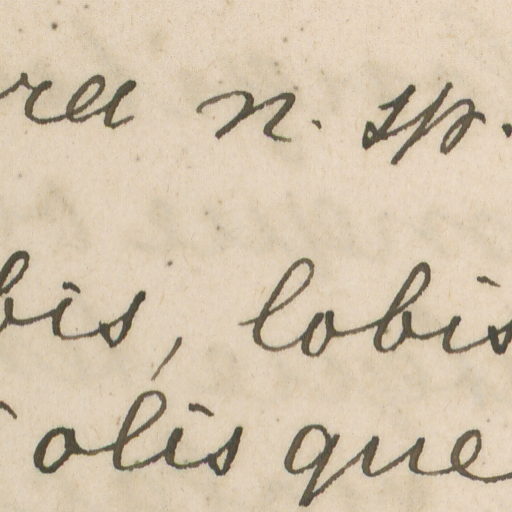 ra n. sp.
bis, lobis
olis que